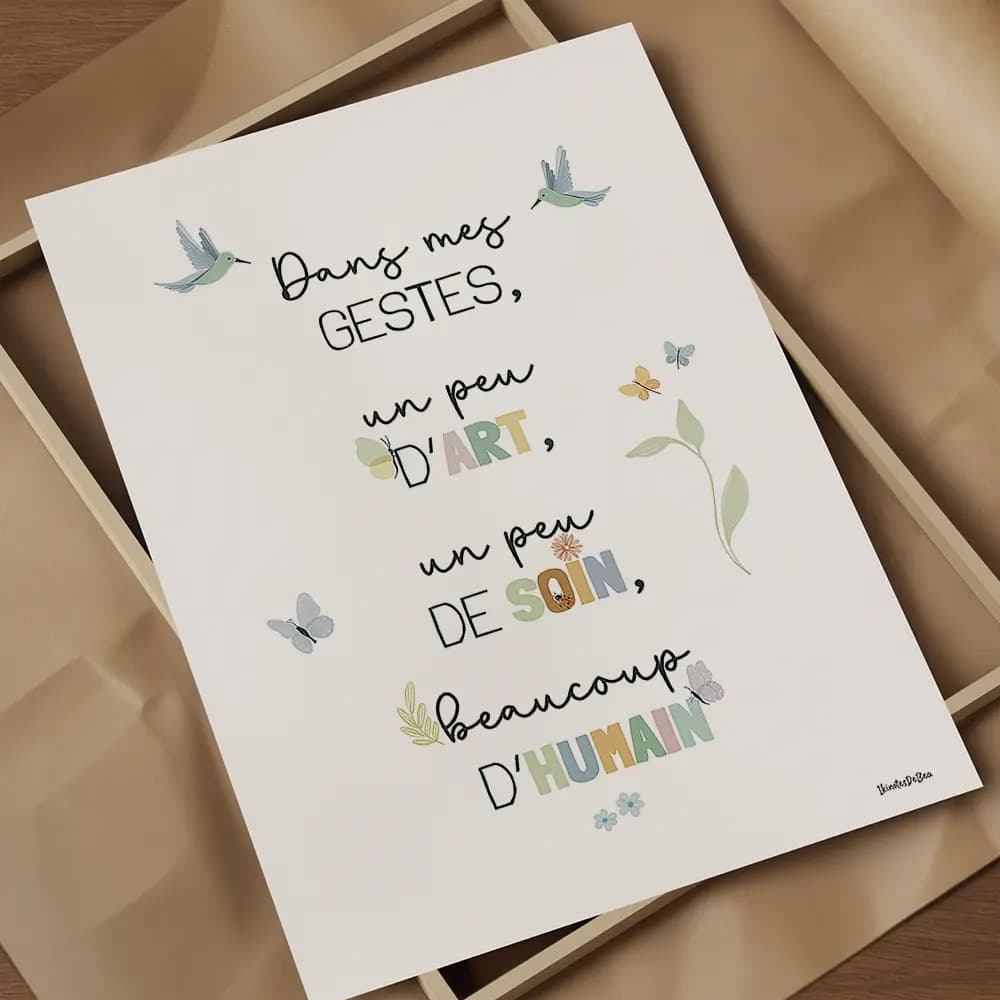 Dans mes
GESTES,
un peu
D'ART,
un peu
DE SOIN,
beaucoup
D'HUMAIN
1kinotesDeBea